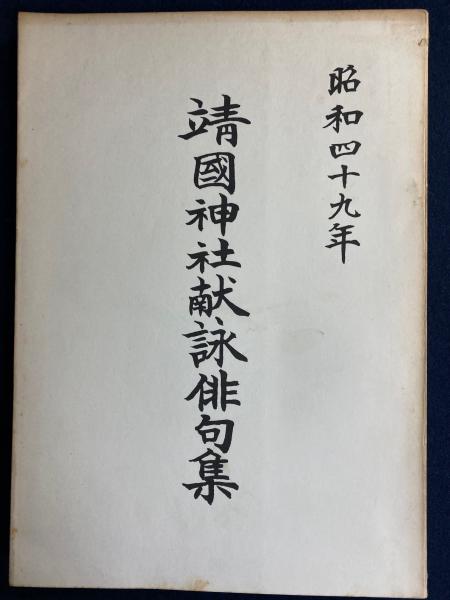 昭和四十九年
靖國神社献詠俳句集